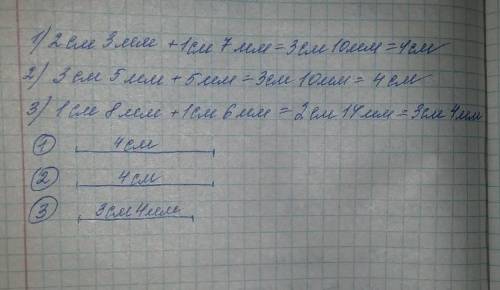 1) 2 см 3 мм + 1 см 7 мм = 3 см 10 мм = 4 см
2) 3 см 5 мм + 5 мм = 3 см 10 мм = 4 см
3) 1 см 8 мм + 1 см 6 мм = 2 см 14 мм = 3 см 4 мм
1 4 см
2 4 см
3 3 см 4 мм